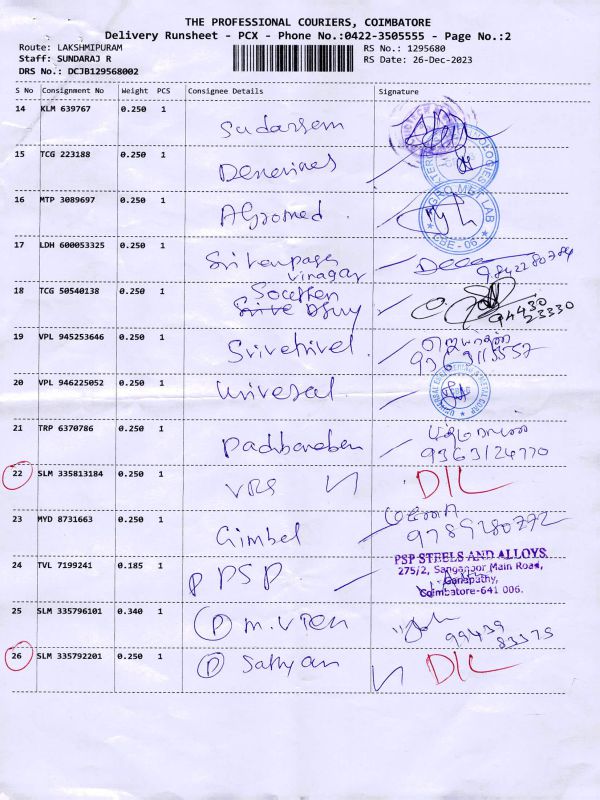 THE PROFESSIONAL COURIERS, COIMBATORE
Delivery Runsheet - PCX - Phone No.:0422-3505555 - Page No.:2
Route: LAKSHMIPURAM RS No.: 1295680
Staff: SUNDARAJ R RS Date: 26-Dec-2023
DRS No.: DCJB129568002
S No Consignment No Weight PCS Consignee Details Signature
14 KLM 639767 0.250 1
15 TCG 223188 0.250 1
16 MTP 3089697 0.250 1 Agromed
AGRO MET LAB
CBE - 06
17 LDH 600053325 0.250 1
vinagar
18 TCG 50540138 0.250 1
94430
23330
19 VPL 945253646 0.250 1 Srivetrivel
20 VPL 946225052 0.250 1 Universal
21 TRP 6370786 0.250 1
9363124770
22 SLM 335813184 0.250 1 VRS DIL
23 MYD 8731663 0.250 1 Gimbel
9789280772
24 TVL 7199241 0.185 1 P PSP
PSP STEELS AND ALLOYS
275/2, Sanganoor Main Road,
Ganapathy,
Coimbatore-641 006.
25 SLM 335796101 0.340 1 P
99439
83375
26 SLM 335792201 0.250 1 P Sathyan DIL